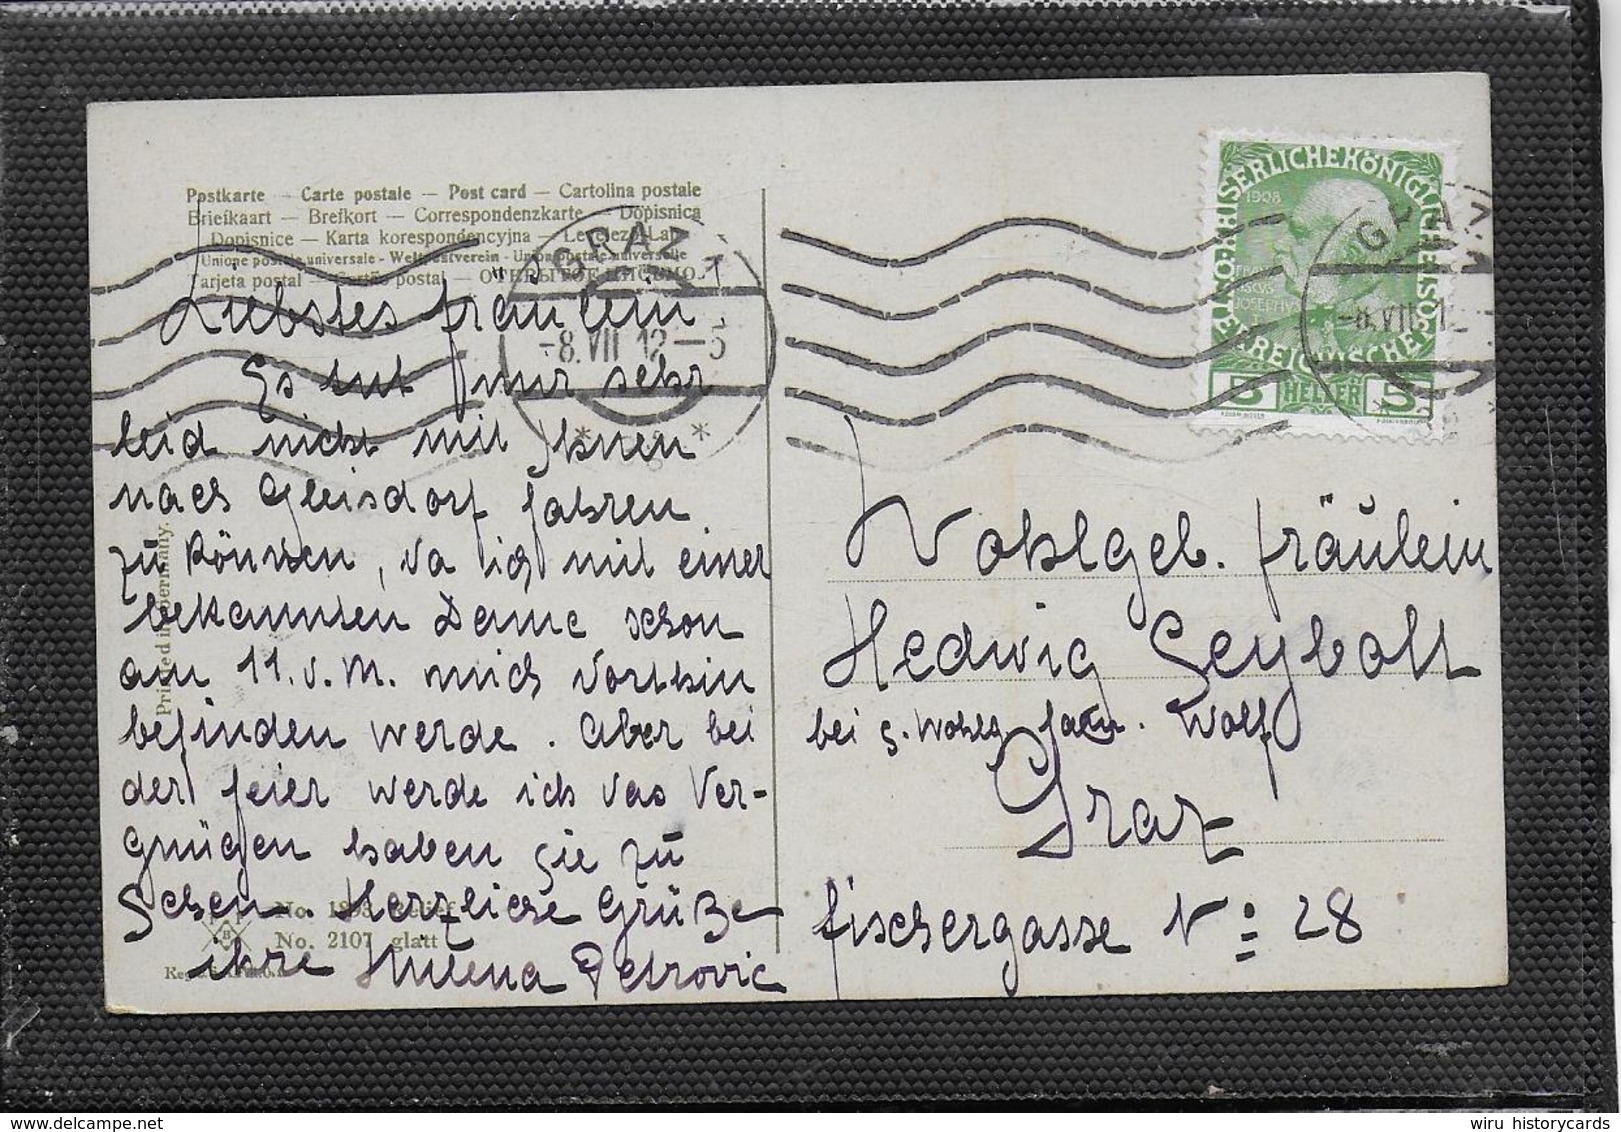 Postkarte — Carte postale — Post card — Cartolina postale
Briefkaart — Brefkort — Correspondenzkarte — Dopisnica
Dopisnice — Karta korespondencyjna — Levelező-Lap
Unione postale universale - Weltpostverein - Union postale universelle
Tarjeta postal — Cartão postal — ОТКРЫТОЕ ПИСЬМО.
GRAZ 1
-8.VII 12-5
Liebstes Fräulein,
Es tut mir sehr
leid nicht mit Ihnen
nach Gleisdorf fahren
zu können, da ich mit einer
bekannten Dame schon
am 11. d. M. mich dorthin
befinden werde. Aber bei
der Feier werde ich das Ver-
gnügen haben Sie zu
Sehen. Herzliche Grüße
ihre Milena Petrovic
Printed in Germany.
No. 1898 Relief
No. 2107 glatt
KAISERLICHEKÖNIGLICHE
1908
FRANCISCUS JOSEPHUS I
5 HELLER 5
GRAZ
-8.VII 12
Wohlgeb. Fräulein
Hedwig Seybolt
bei Wohlg. Fam. Wolf
Graz
Fischergasse No 28
wiru historycards